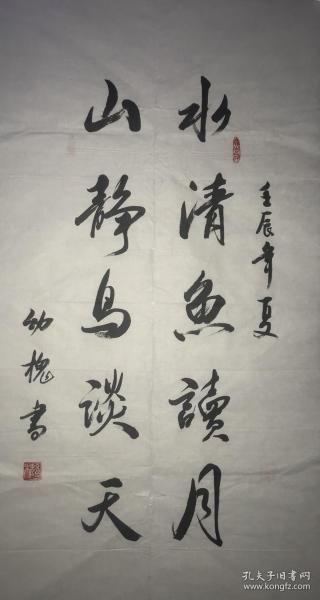 壬辰年夏
水清魚讀月
山靜鳥談天
幼槐書
孔夫子旧书网
www.kongfz.com